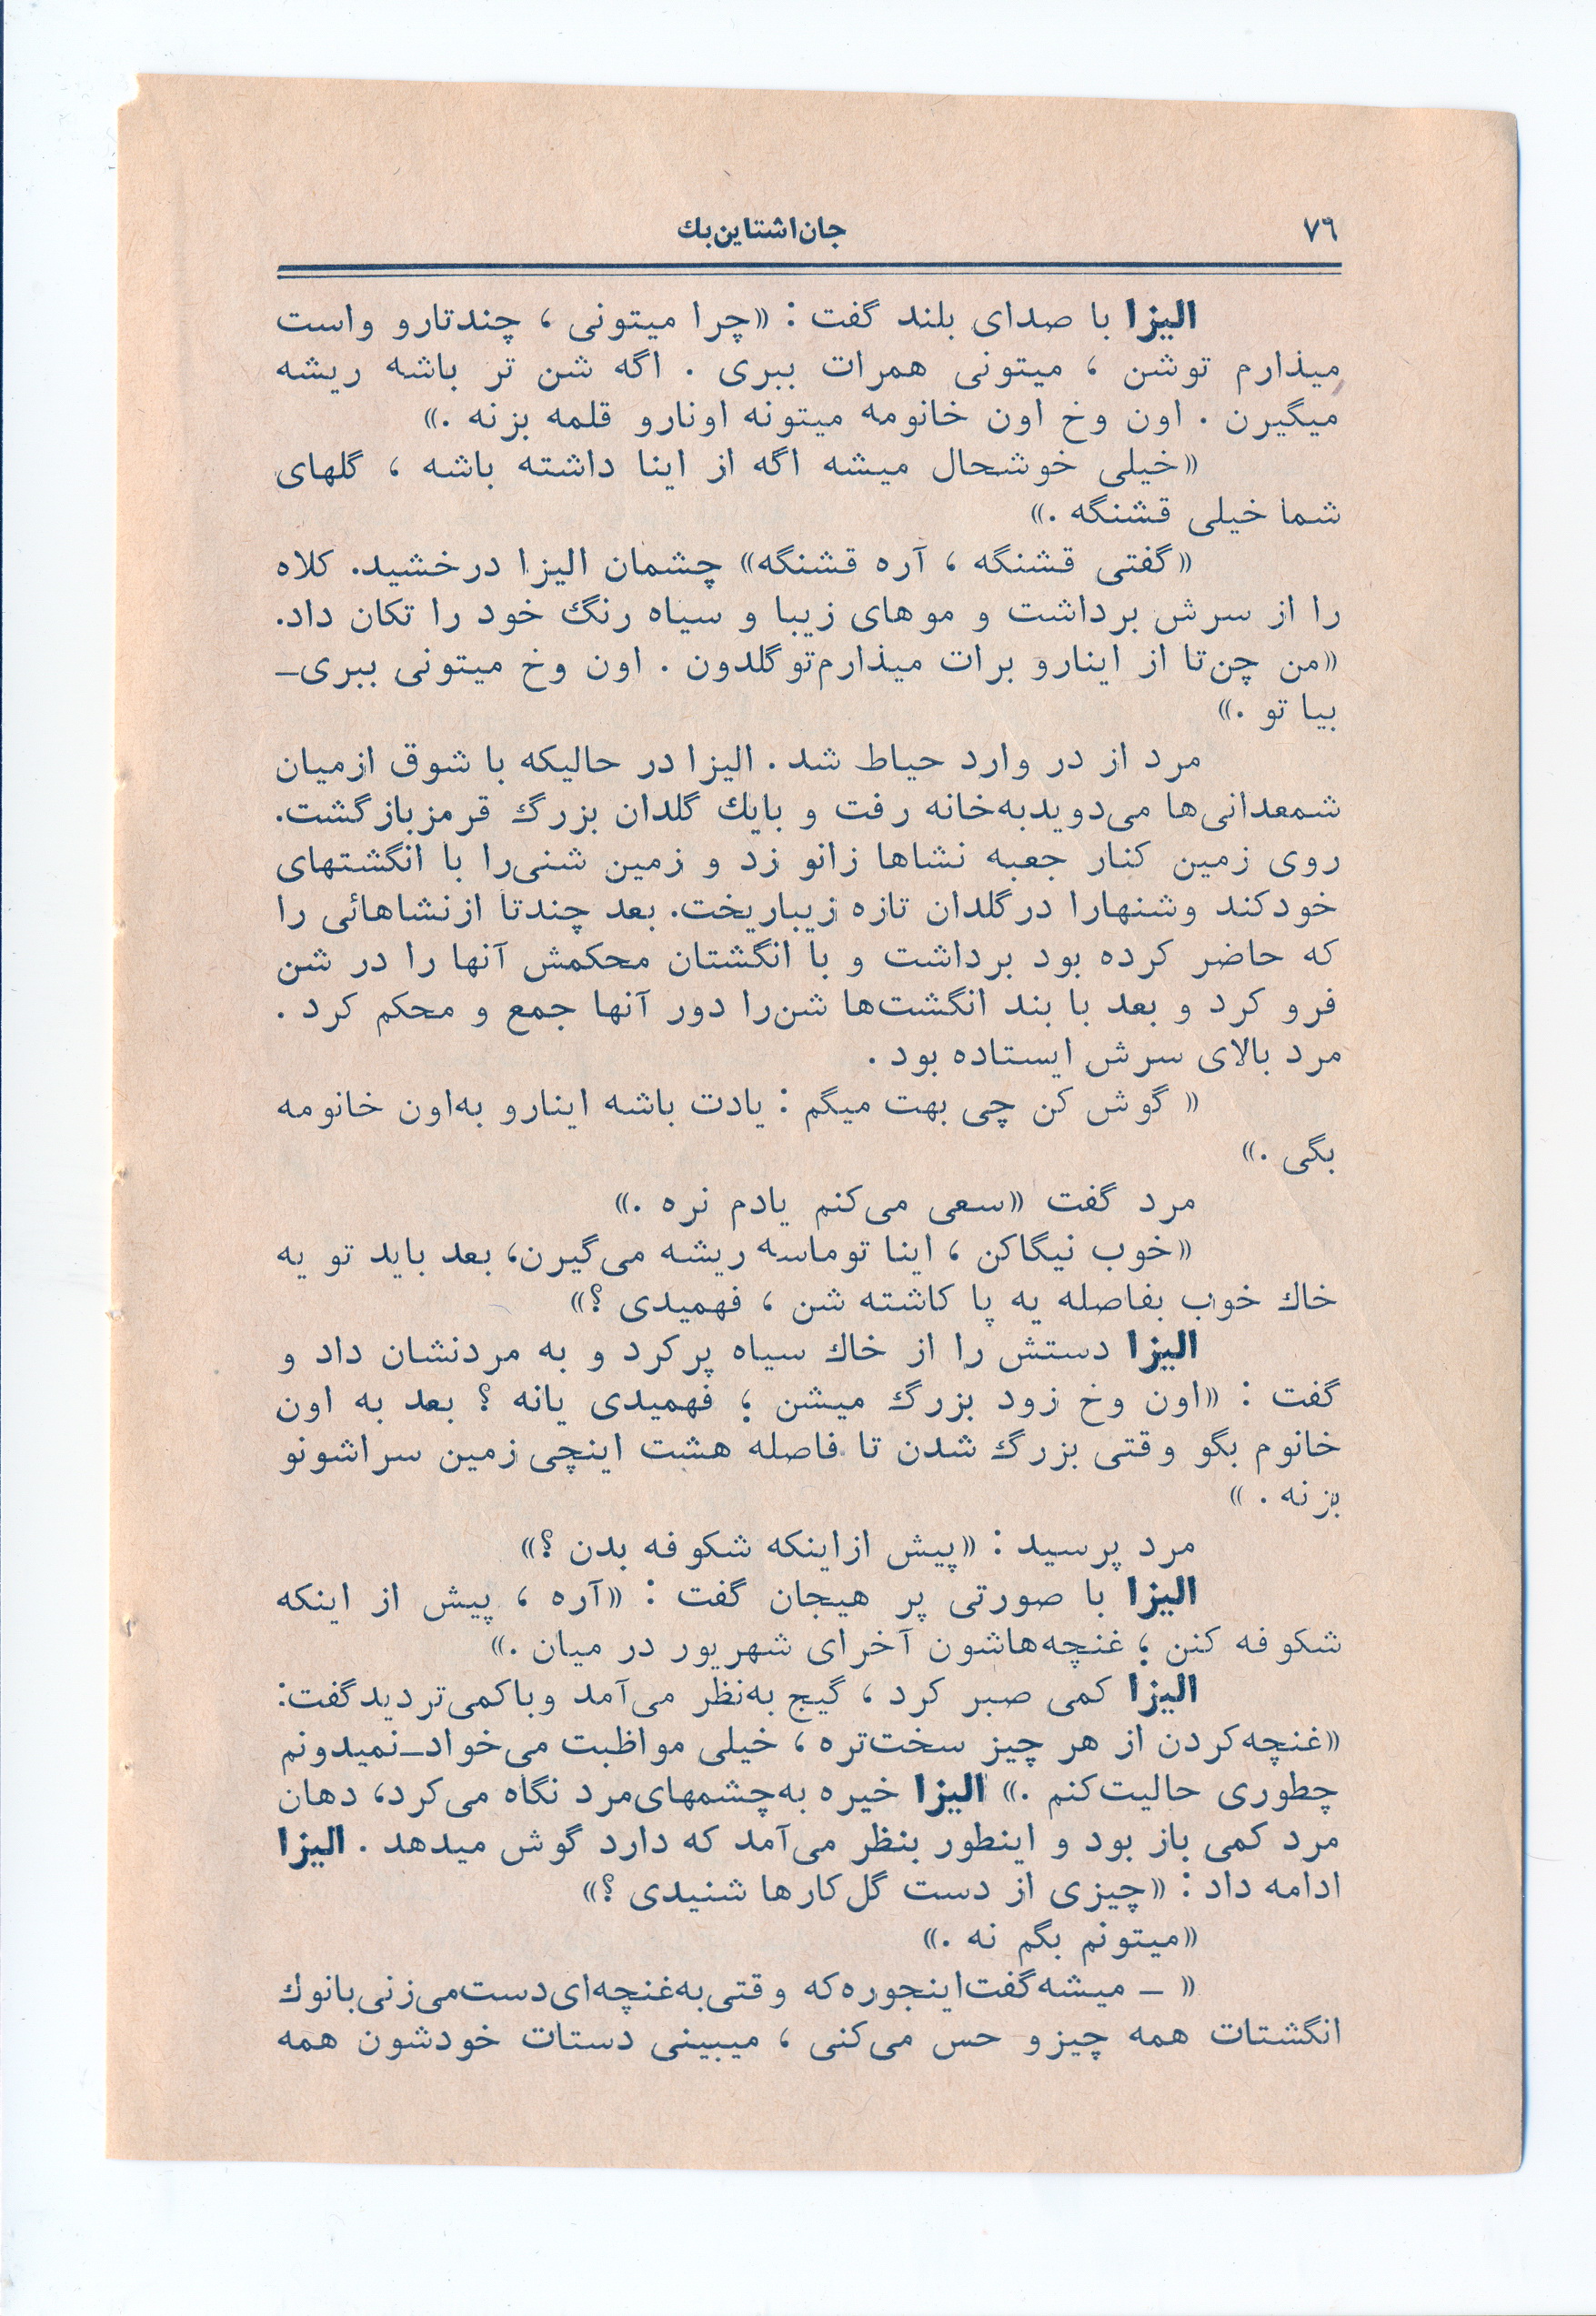 ۷۶
جان‌اشتاین‌بك
الیزا با صدای بلند گفت : «چرا میتونی ، چندتارو واست
میذارم توشن ، میتونی همرات ببری . اگه شن تر باشه ریشه
میگیرن . اون وخ اون خانومه میتونه اونارو قلمه بزنه .»
«خیلی خوشحال میشه اگه از اینا داشته باشه ، گلهای
شما خیلی قشنگه .»
«گفتی قشنگه ، آره قشنگه» چشمان الیزا درخشید. کلاه
را از سرش برداشت و موهای زیبا و سیاه رنگ خود را تکان داد.
«من چن‌تا از اینارو برات میذارم‌توگلدون . اون وخ میتونی ببری–
بیا تو .»
مرد از در وارد حیاط شد . الیزا در حالیکه با شوق ازمیان
شمعدانی‌ها می‌دویدبه‌خانه رفت و بایك گلدان بزرگ قرمزبازگشت.
روی زمین کنار جعبه نشاها زانو زد و زمین شنی‌را با انگشتهای
خودکند وشنهارا درگلدان تازه زیباریخت. بعد چندتا ازنشاهائی را
که حاضر کرده بود برداشت و با انگشتان محکمش آنها را در شن
فرو کرد و بعد با بند انگشت‌ها شن‌را دور آنها جمع و محکم کرد .
مرد بالای سرش ایستاده بود .
« گوش کن چی بهت میگم : یادت باشه اینارو به‌اون خانومه
بگی .»
مرد گفت «سعی می‌کنم یادم نره .»
«خوب نیگاکن ، اینا توماسه ریشه می‌گیرن، بعد باید تو یه
خاك خوب بفاصله یه پا کاشته شن ، فهمیدی ؟»
الیزا دستش را از خاك سیاه پرکرد و به مردنشان داد و
گفت : «اون وخ زود بزرگ میشن ؛ فهمیدی یانه ؟ بعد به اون
خانوم بگو وقتی بزرگ شدن تا فاصله هشت اینچی زمین سراشونو
بزنه . »
مرد پرسید : «پیش ازاینکه شکوفه بدن ؟»
الیزا با صورتی پر هیجان گفت : «آره ، پیش از اینکه
شکوفه کنن ؛ غنچه‌هاشون آخرای شهریور در میان .»
الیزا کمی صبر کرد ، گیج به‌نظر می‌آمد وباکمی‌تردیدگفت:
«غنچه‌کردن از هر چیز سخت‌تره ، خیلی مواظبت می‌خواد–نمیدونم
چطوری حالیت‌کنم .» الیزا خیره به‌چشمهای‌مرد نگاه می‌کرد، دهان
مرد کمی باز بود و اینطور بنظر می‌آمد که دارد گوش میدهد . الیزا
ادامه داد : «چیزی از دست گل‌کارها شنیدی ؟»
«میتونم بگم نه .»
« – میشه‌گفت‌اینجوره‌که وقتی‌به‌غنچه‌ای‌دست‌می‌زنی‌بانوك
انگشتات همه چیزو حس می‌کنی ، میبینی دستات خودشون همه